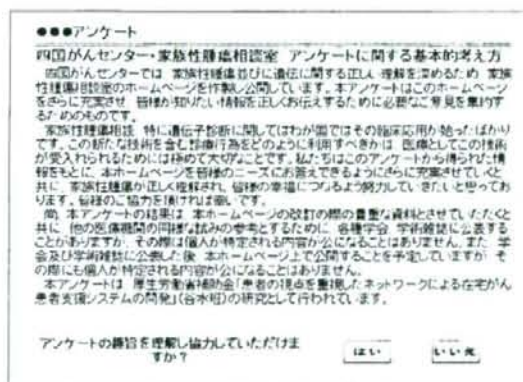 ●●●アンケート
四国がんセンター・家族性腫瘍相談室 アンケートに関する基本的考え方
四国がんセンターでは 家族性腫瘍並びに遺伝に関する正しい理解を深めるため 家族
性腫瘍相談室のホームページを作製し公開しています。本アンケートはこのホームページ
をさらに充実させ 皆様が知りたい情報を正しくお伝えするために必要なご意見を集約す
るためのものです。
家族性腫瘍相談 特に遺伝子診断に関してはわが国ではその臨床応用が始ったばかり
です。この新たな技術を含む診療行為をどのように利用すべきかは 医療としてこの技術
が受入れられるためには極めて大切なことです。私たちはこのアンケートから得られた情
報をもとに、本ホームページを皆様のニーズにお答えできるようにさらに充実させていくと
共に 家族性腫瘍が正しく理解され、皆様の幸福につながるよう努力していきたいと思ってお
ります。皆様のご協力を頂ければ幸いです。
尚 本アンケートの結果は 本ホームページの改訂の際の貴重な資料とさせていただくと
共に 他の医療機関の同様な試みの参考とするために 各種学会 学術雑誌に公表する
ことがありますが その際は個人が特定される内容が公になることはありません。また 学
会及び学術雑誌に公表した後 本ホームページ上で公開することを予定していますが そ
の際にも個人が特定される内容が公になることはありません。
本アンケートは 厚生労働省補助金「患者の視点を重視したネットワークによる在宅がん
患者支援システムの開発」(谷水班)の研究として行われています。
アンケートの趣旨を理解し協力していただけま
すか?
はい
いいえ